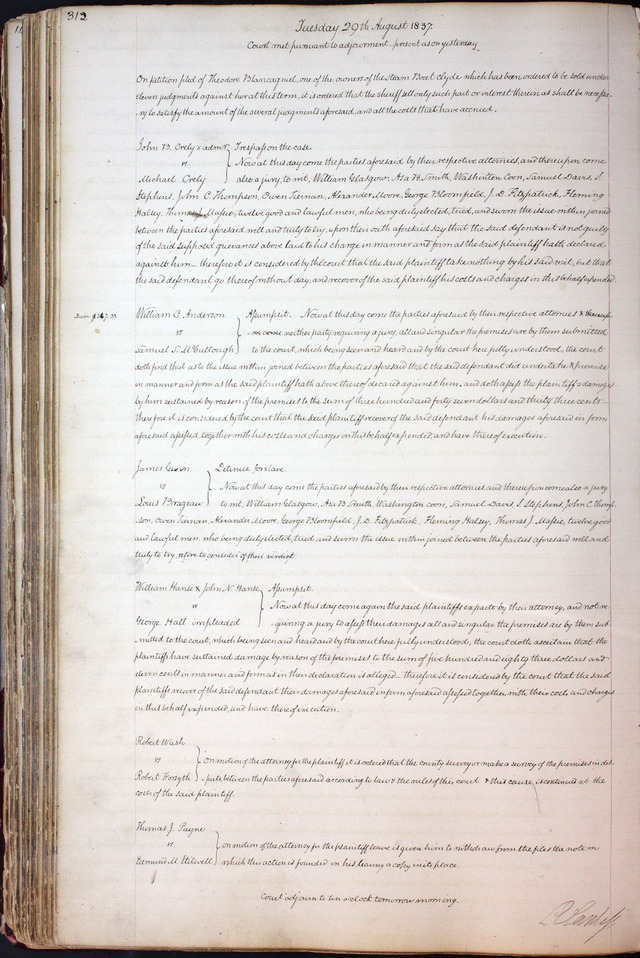 312
Tuesday 29th August 1837.
Court met pursuant to adjournment present as on yesterday
On petition filed of Theodore one of the owners of the Steam Boat Clyde which has been ordered to be sold under
eleven judgments against her at this term, it is ordered that the sheriff sell only such part or interest therein as shall be necessa-
ry to satisfy the amount of the several judgments aforesaid, and all the costs that have accrued.
John B. Crely's admr } Trespass on the case
vs } Now at this day come the parties aforesaid by their respective attornies, and thereupon come
Michael Crely } also a jury, to wit, William Glasgow, Asa B. Smith, Washinton Coon, Samuel Davis, S.
Stephens, John C. Thompson, Owen Tiernan, Alexander Moore, George Bloomfield, J. D. Fitzpatrick, Fleming
Halsey, Thomas J. twelve good and lawful men, who being duly elected, tried, and sworn the issue within joined
between the parties aforesaid well and truly to try, upon their oath aforesaid say that the said defendant is not guilty
of the said supposed grievances above laid to his charge in manner and form as the said plaintiff hath declared
against him— therefore it is considered by the court that the said plaintiff take nothing by his said writ, but that
the said defendant go thereof without day, and recover of the said plaintiff his costs and charges in this behalf expended.
Dam. $347.33 William C. Anderson } Assumpsit. Now at this day come the parties aforesaid by their respective attornies & thereup-
vs } on come neither party requiring a jury, all and singular the premises are by them submitted
Samuel S. McCullough } to the court, which being seen and heard and by the court here fully understood, the court
doth find that as to the issue within joined between the parties aforesaid that the said defendant did undertake & promise
in manner and form as the said plaintiff hath above thereof declared against him, and doth assess the plaintiff's damages
by him sustained by reason of the premises to the sum of three hundred and forty seven dollars and thirty three cents—
therefore it is considered by the court that the said plaintiff recover of the said defendant his damages aforesaid in form
aforesaid assessed, together with his costs and charges in this behalf expended, and have thereof execution.
James } Detinue for slave
vs } Now at this day come the parties aforesaid by their respective attornies and thereupon come also a jury
Louis Brazeau } to wit, William Glasgow, Asa B. Smith, Washington Coon, Samuel Davis, S. Stephens, John C. Thomp-
son, Owen Tiernan, Alexander Moore, George Bloomfield, J. D. Fitzpatrick, Fleming Halsey, Thomas J. twelve good
and lawful men, who being duly elected, tried, and sworn the issue within joined between the parties aforesaid well and
truly to try, retire to consider of their verdict
William Hanse & John N. Hanse } Assumpsit.
vs } Now at this day come again the said plaintiffs exparte by their attorney, and not re-
George Hall impleaded } -quiring a jury to assess their damages all and singular the premises are by them sub
mitted to the court, which being seen and heard and by the court here fully understood, the court doth ascertain that the
plaintiffs have sustained damage by reason of the premises to the sum of five hundred and eighty three dollars and
eleven cents in manner and form as in their declaration is alleged— therefore it is considered by the court that the said
plaintiffs recover of the said defendant their damages aforesaid in form aforesaid assessed together with their costs and charges
in this behalf expended, and have thereof execution.
Robert Wash
vs } on motion of the attorney for the plaintiff it is ordered that the county surveyor make a survey of the premises in dis
Robert Forsyth } -pute between the parties aforesaid according to law & the rules of this court & this cause is continued at the
costs of the said plaintiff.
Thomas J. Payne
vs } on motion of the attorney for the plaintiff leave is given him to withdraw from the files the note on
Edmund M. Stilwell } which this action is founded on his leaving a copy in its place.
Court adjourn to ten o'clock tomorrow morning.